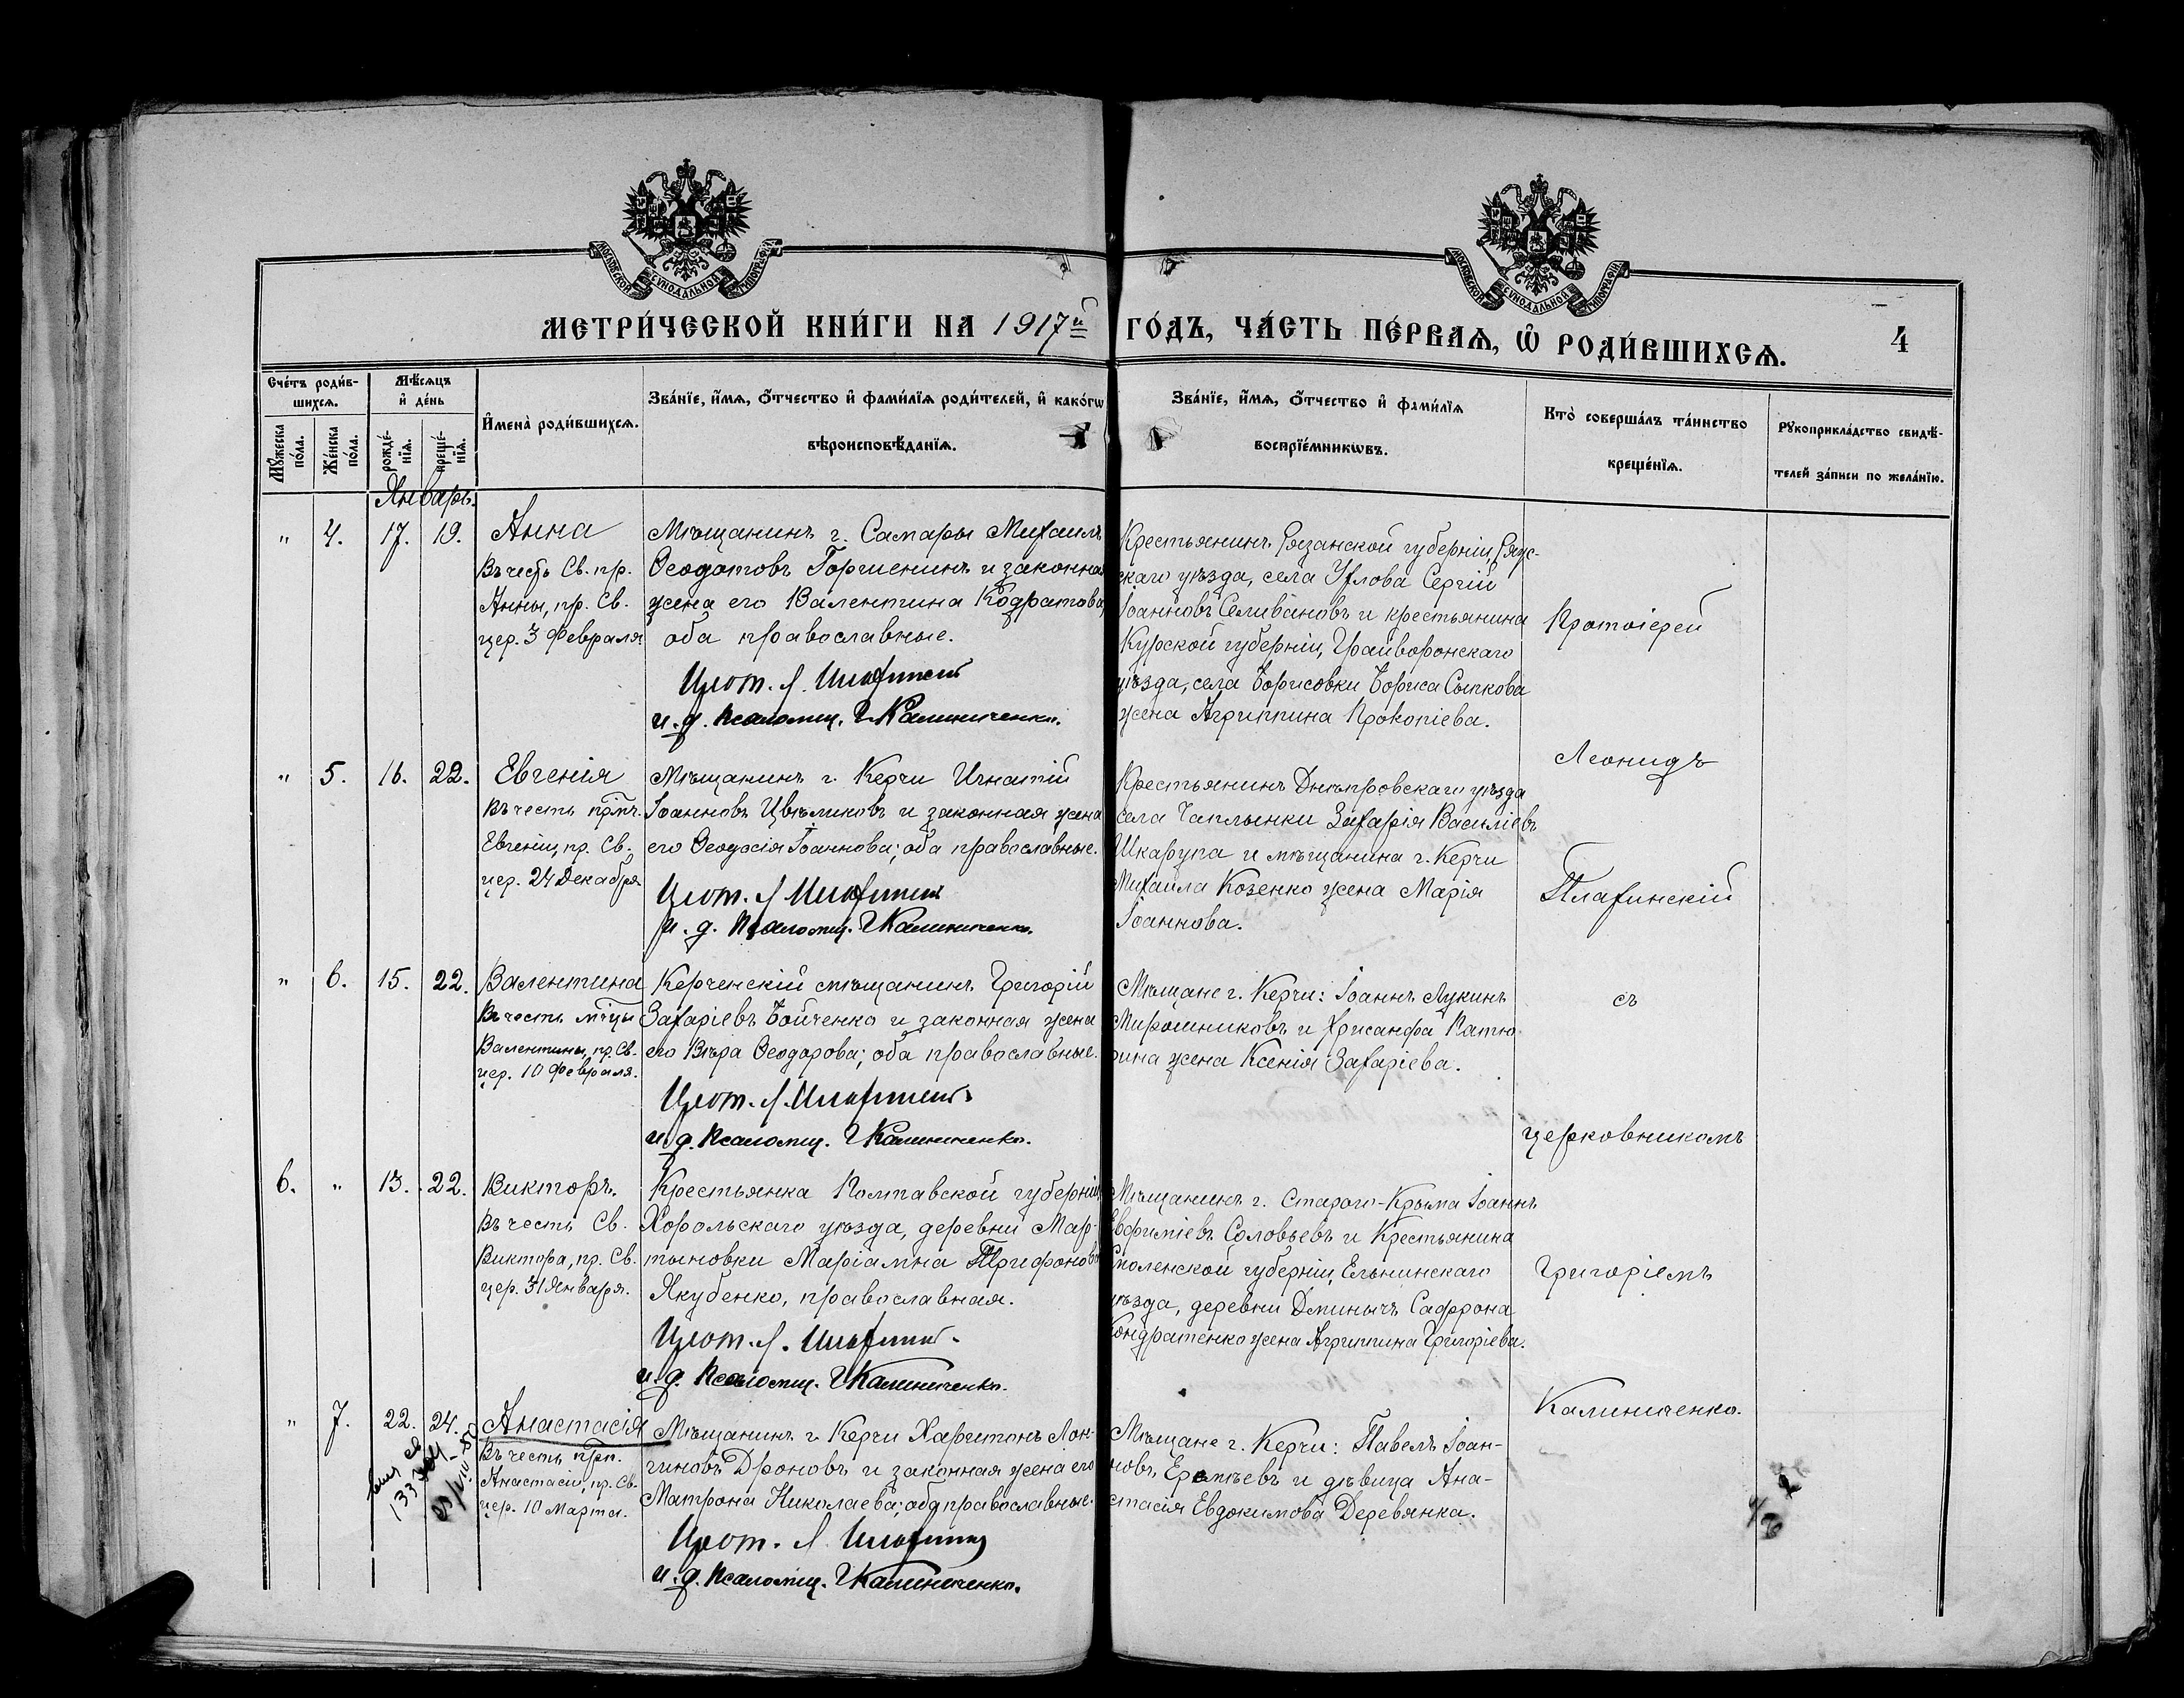 МОСКОВСКОЙ СѴНОДАЛЬНОЙ ТИПОГРАФІИ
МОСКОВСКОЙ СѴНОДАЛЬНОЙ ТИПОГРАФІИ
МЕТРИ́ЧЕСКОЙ КНИ́ГИ НА 1917й ГО́ДЪ, ЧА́СТЬ ПЕ́РВАѦ, Ѡ҆ РОДИ́ВШИХСѦ.
4
Сче́тъ роди́в-
шихсѧ.
Мѣ́сѧцъ
и҆ де́нь
И҆мена̀ роди́вшихсѧ.
Зва́нїе, и҆́мѧ, ѻ҆́тчество и҆ фами́лїѧ роди́телей, и҆ како́гѡ
вѣроисповѣ́данїѧ.
Зва́нїе, и҆́мѧ, ѻ҆́тчество и҆ фами́лїѧ
воспрїе́мникѡвъ.
Кто̀ соверша́лъ та́инство
креще́нїѧ.
Рꙋкоприкла́дство свидѣ́-
телей за́писи по жела́нїю.
Мꙋ́жеска
по́ла.
Же́нска
по́ла.
рожде́-
нїѧ.
креще́-
нїѧ.
Январь.
" 4. 17. 19. Анна
Въ честь Св. пр.
Анны, пр. Св.
цер. 3 Февраля
Мѣщанинъ г. Самары Михаилъ
Ѳеодотовъ Горшенинъ и законная
жена его Валентина Кодратова,
оба православные.
Прот. Л.
и. д. псаломщ. Г Калиниченко.
Крестьянинъ Рязанской губерніи, Ряж-
скаго уѣзда, села Ухлова Сергій
Іоанновъ Селивановъ и крестьянина
Курской губерніи, Грайворонскаго
уѣзда, села Борисовки Бориса Сыпкова
жена Агриппина Прокопіева.
" 5. 16. 22. Евгенія
Въ честь прпмч.
Евгеніи, пр. Св.
цер. 24 Декабря
Мѣщанинъ г. Керчи Игнатій
Іоанновъ Цвѣликовъ и законная жена
его Ѳеодосія Іоаннова; оба православные.
Прот. Л.
и. д. Псаломщ. Г Калиниченко.
Крестьянинъ Днѣпровскаго уѣзда
села Чаплынки Захарія Василіевъ
Шкарупа и мѣщанина г. Керчи
Михаила Козенко жена Марія
Іоаннова.
" 6. 15. 22. Валентина
Въ честь мчцы
Валентины, пр. Св.
цер. 10 Февраля.
Керченскій мѣщанинъ Григорій
Захаріевъ Бойченко и законная жена
его Вѣра Ѳеодорова; оба православные.
Прот. Л.
и. д. Псаломщ. Г Калиниченко.
Мѣщане г. Керчи: Іоаннъ Лукинъ
Мирошниковъ и Хрисанфа Катю-
рина жена Ксенія Захаріева.
6. " 13. 22. Викторъ.
Въ честь Св.
Виктора, пр. Св.
цер. 31 Января.
Крестьянка Полтавской губерніи
Хорольскаго уѣзда, деревни Мар-
тыновки Маріамна Трифонова
Якубенко, православная.
Прот. Л.
и. д. Псаломщ. Г Калиниченко.
Мѣщанинъ г. Стараго-Крыма Іоаннъ
Евфиміевъ Соловьевъ и Крестьянина
Смоленской губерніи, Ельнинскаго
уѣзда, деревни Дминычъ Сафрона
Кондратенко жена Агриппина Григоріева.
" 7. 22. 24. Анастасія
Въ честь прп.
Анастасіи, пр. Св.
цер. 10 Марта.
Мѣщанинъ г. Керчи Харитонъ Лон-
гиновъ Дроновъ и законная жена его
Матрона Николаева; оба православные.
Прот. Л.
и. д. Псаломщ. Г Калиниченко.
Мѣщане г. Керчи: Павелъ Іоан-
новъ Еремѣевъ и дѣвица Ана-
стасія Евдокимова Деревянка.
Протоіерей
Леонидъ
Плахинскій
съ
церковникомъ
Григоріемъ
Калиниченко.